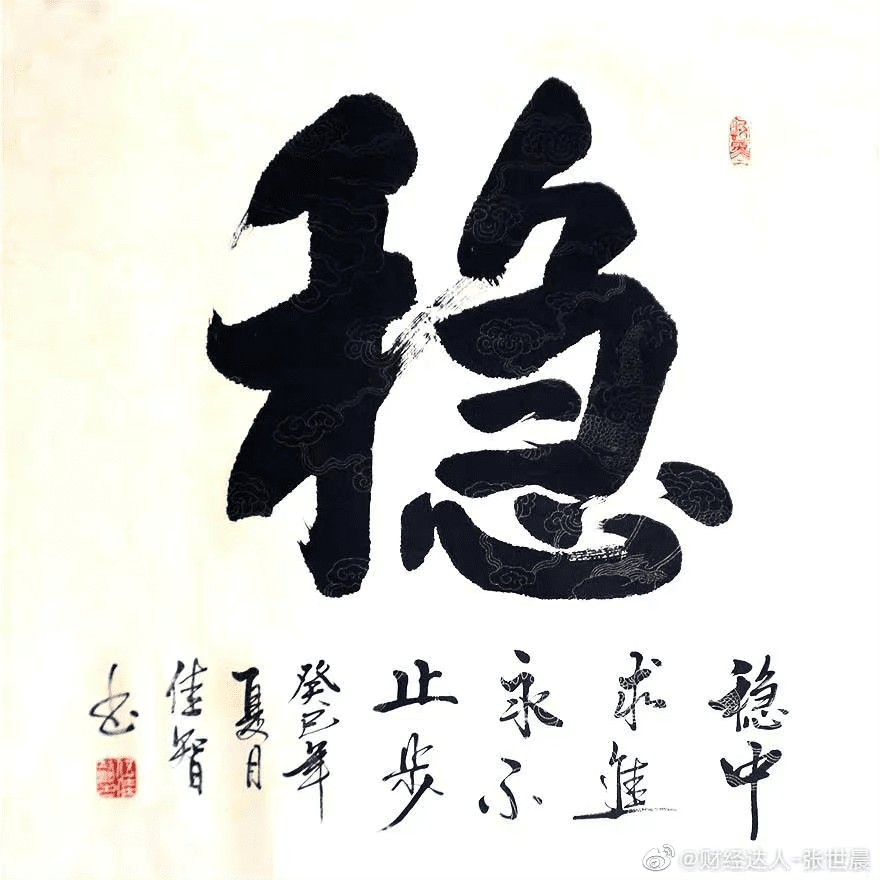 稳
稳中
求進
永不
止步
癸巳年
夏月
佳智
书
@财经达人-张世晨